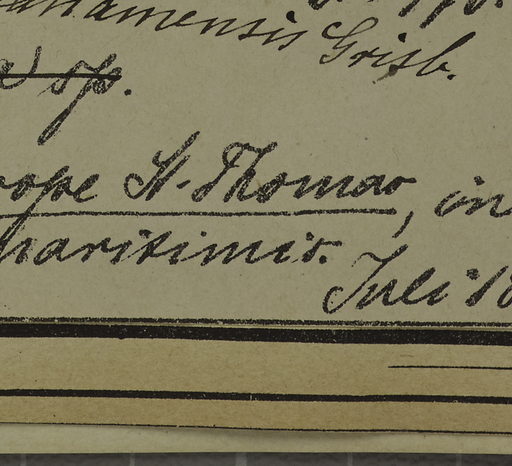 panamensis Griseb.
sp.
prope St. Thomas, in
maritimis.
Juli 18